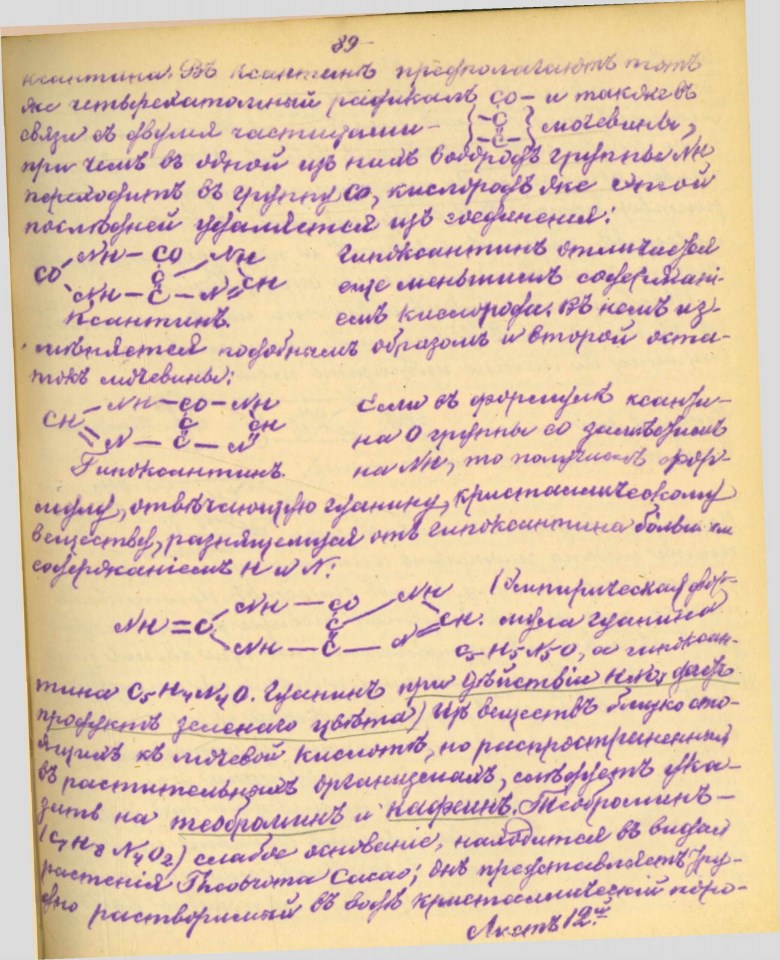 89
ксантина. Въ ксантинѣ предполагаютъ тотъ
же четырехатомный радикалъ CO— и также въ
связи съ двумя частицами — {C C} мочевины,
при чемъ въ одной изъ нихъ водородъ группы NH
переходитъ въ группу CO, кислородъ же этой
последней удаляется изъ соединенія:
CO NH — CO NH Гипоксантинъ отличается
C CH еще меньшимъ содержані-
NH — C — N емъ кислорода. Въ немъ из-
Ксантинъ.
мѣняется подобнымъ образомъ и второй оста-
токъ мочевины:
CH NH — CO — NH Если въ формулѣ ксанти-
C CH на O группы CO замѣстимъ
N — C — N на NH, то получимъ фор-
Гипоксантинъ.
мулу, отвѣчающую гуанину, кристаллическому
веществу, разнящемуся отъ гипоксантина большимъ
содержаніемъ H и N:
NH — CO NH (Эмпирическая фор-
NH = C C CH. мула гуанина
NH — C — N C5H5N5O, а гипоксан-
тина C5H4N4O. Гуанинъ при дѣйствіи HNO3 даетъ
продуктъ зеленаго цвѣта) Изъ веществъ близко сто-
ящихъ къ мочевой кислотѣ, но распространенный
въ растительныхъ организмахъ, слѣдуетъ ука-
зать на теоброминъ и кафеинъ. Теоброминъ —
(C7H8N4O2) слабое основаніе, находится въ
растенія Theobroma Cacao; онъ представляетъ тру-
дно растворимый въ водѣ кристаллическій поро-
Листъ 12й